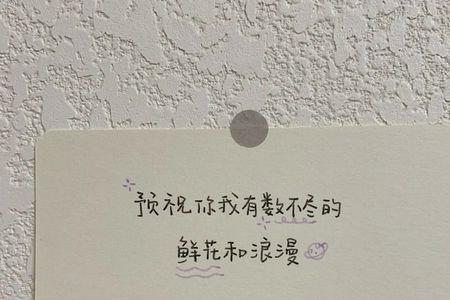 预祝你我有数不尽的
鲜花和浪漫